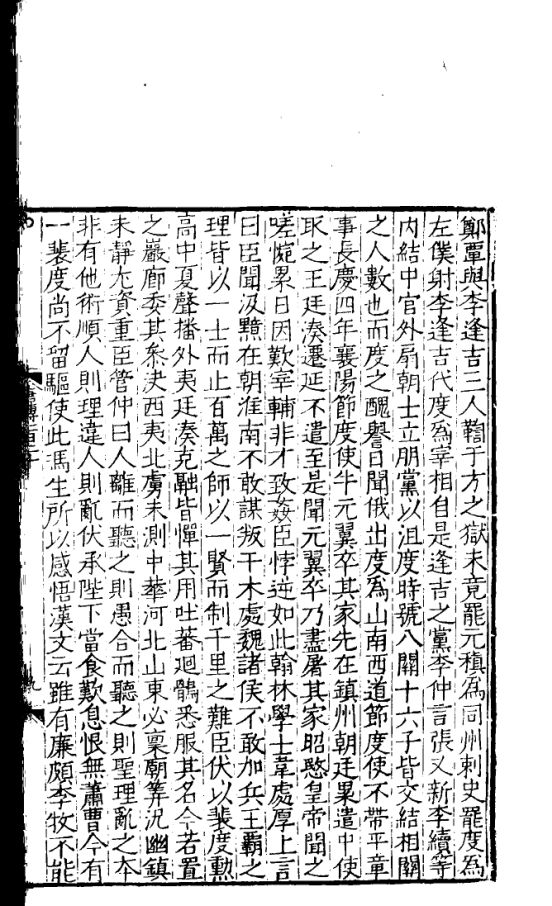 鄭覃與李逢吉三人鞫于方之獄未竟罷元稹爲同州刺史罷度爲
左僕射李逢吉代度爲宰相自是逢吉之黨李仲言張又新李續等
内結中官外扇朝士立朋黨以沮度時號八關十六子皆交結相關
之人數也而度之醜譽日聞俄出度爲山南西道節度使不帶平章
事長慶四年襄陽節度使牛元翼卒其家先在鎮州朝廷累遣中使
取之王廷湊遷延不遣至是聞元翼卒乃盡屠其家昭愍皇帝聞之
嗟惋累日因歎宰輔非才致姦臣悖逆如此翰林學士韋處厚上言
曰臣聞汲黯在朝淮南不敢謀叛干木處魏諸侯不敢加兵王霸之
理皆以一士而止百萬之師以一賢而制千里之難臣伏以裴度勲
高中夏聲播外夷廷湊克融皆憚其用吐蕃迴鶻悉服其名今若置
之巖廊委其叅决西夷北虜未測中華河北山東必稟廟筭況幽鎮
未靜尤資重臣管仲曰人離而聽之則愚合而聽之則聖理亂之本
非有他術順人則理違人則亂伏承陛下當食歎息恨無蕭曹今有
一裴度尚不留驅使此馮生所以感悟漢文云雖有廉頗李牧不能